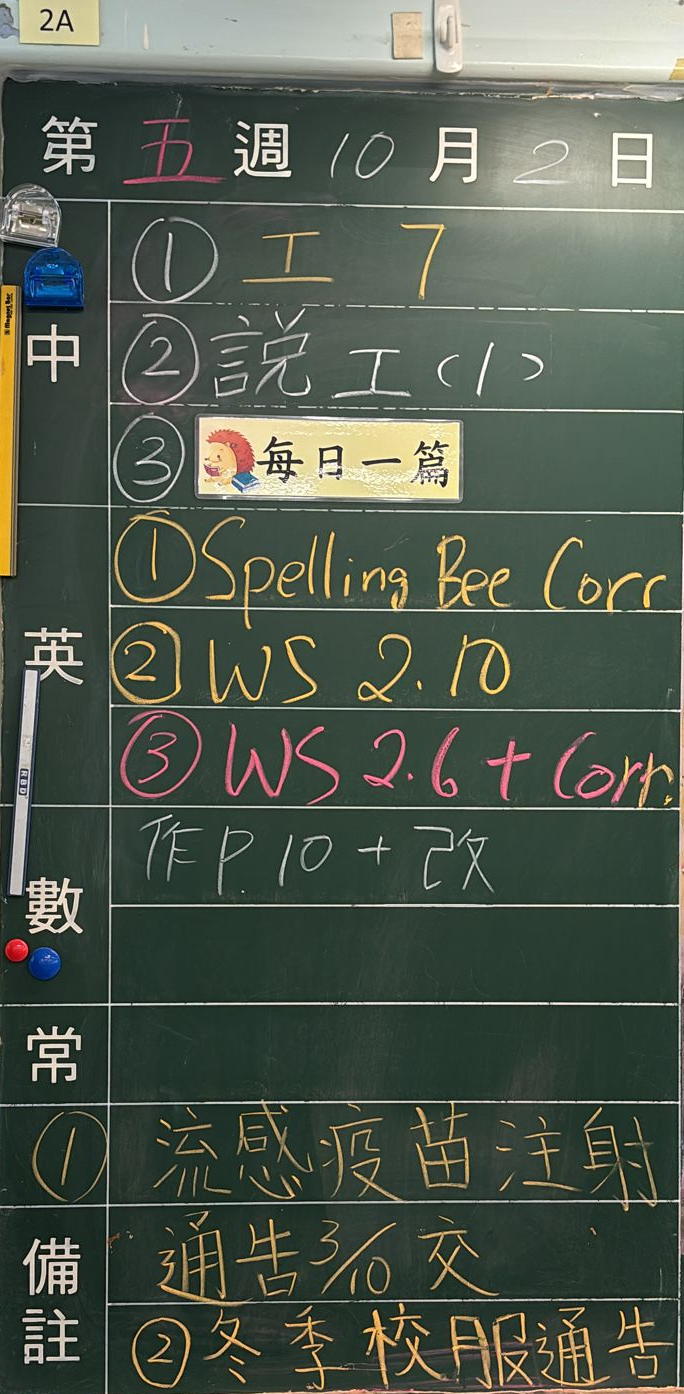 2A
第五週10月2日
中
① 工 7
② 説工(1)
③ 每日一篇
英
① Spelling Bee Corr
② WS 2.10
③ WS 2.6 + Corr.
數
作P.10 + 改
常
① 流感疫苗注射
備註
通告3/10交
② 冬季校服通告